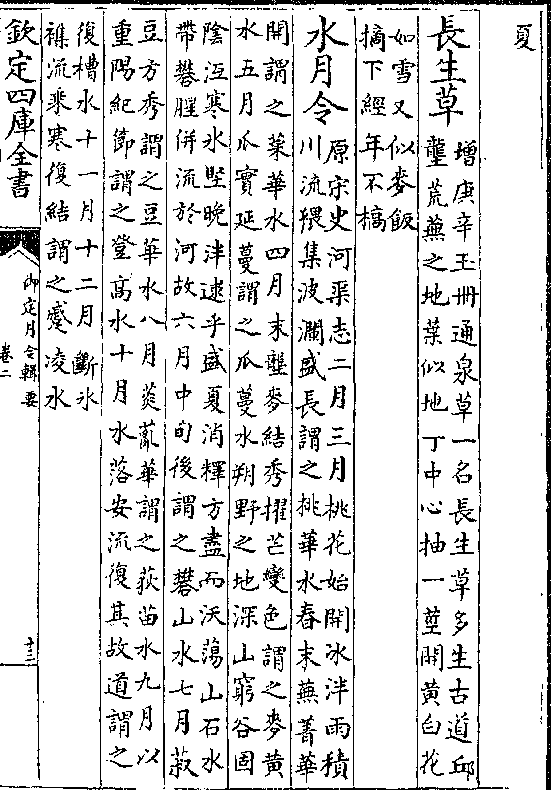 夏
長生草
增庚辛玉冊通泉草一名長生草多生古道邱
壟荒蕪之地葉似地丁中心抽一莖開黄白花
如雪又似麥飯
摘下經年不槁
水月令
原宋史河渠志二月三月桃花始開冰泮雨積
川流猥集波瀾盛長謂之桃華水春末蕪菁華
開謂之菜華水四月末壟麥結秀擢芒變色謂之麥黄
水五月瓜實延蔓謂之瓜蔓水朔野之地深山窮谷固
陰沍寒冰堅晚泮逮乎盛夏消釋方盡而沃蕩山石水
帶礬腥併流於河故六月中旬後謂之礬山水七月菽
豆方秀謂之豆華水八月菼薍華謂之荻苗水九月以
重陽紀節謂之登髙水十月水落安流復其故道謂之
復槽水十一月十二月斷氷
雜流乘寒復結謂之蹙凌水
欽定四庫全書
御定月令輯要
卷二
十三